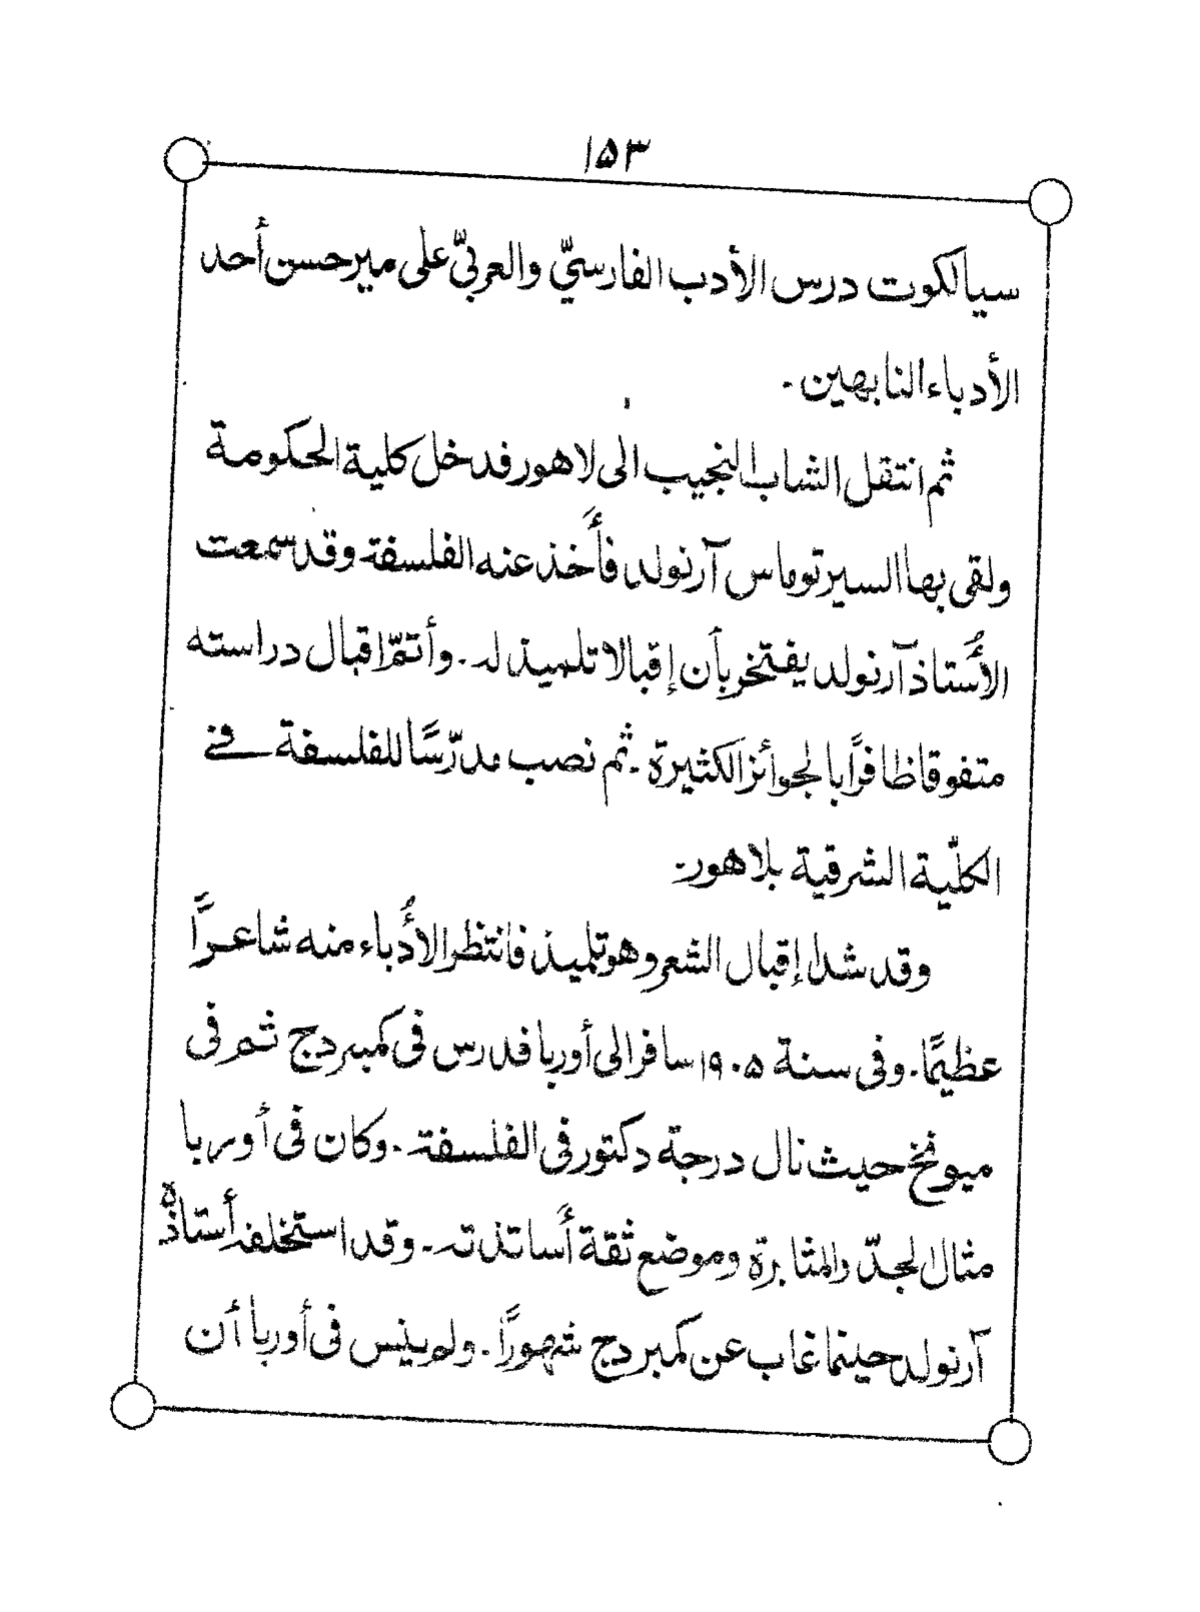 ۱۵۳
سيالكوت درس الأدب الفارسيّ والعربيّ على مير حسن أحد
الأدباء النابهين.
ثم انتقل الشاب النجيب الى لاهور فدخل كلية الحكومة
ولقى بها السير توماس آرنولد فأَخذ عنه الفلسفة وقد سمعت
الأُستاذ آرنولد يفتخر بأن إقبالا تلميذ له. وأتمّ اقبال دراسته
متفوقا ظافرًا بالجوائز الكثيرة. ثم نصب مدرّسًا للفلسفة في
الكلّية الشرقية بلاهور.
وقد شدا إقبال الشعر وهو تلميذ فانتظر الأُدباء منه شاعرًا
عظيمًا. وفى سنة ۱۹۰۵ سافر الى أوربا فدرس فى كمبردج ثم فى
ميونخ حيث نال درجة دكتور فى الفلسفة. وكان فى أوربا
مثال الجدّ والمثابرة وموضع ثقة أَساتذته. وقد استخلفه أستاذهُ
آرنولد حينما غاب عن كمبردج شهورًا. ولم ينس فى أوربا أن